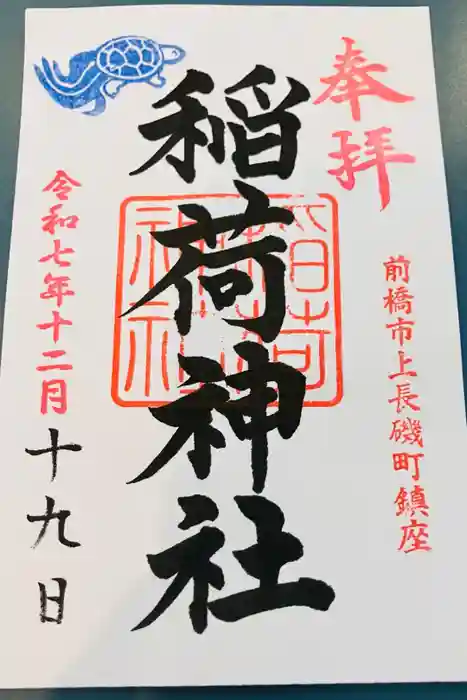 奉拝
前橋市上長磯町鎮座
稲荷神社
令和七年十二月十九日